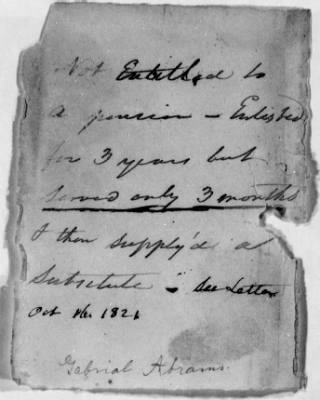 Not Entitled to
a pension - Enlisted
for 3 years but
served only 3 months
& then supply'd a
Substitute - See Letter
Oct 1821
Gabrial Abrams.